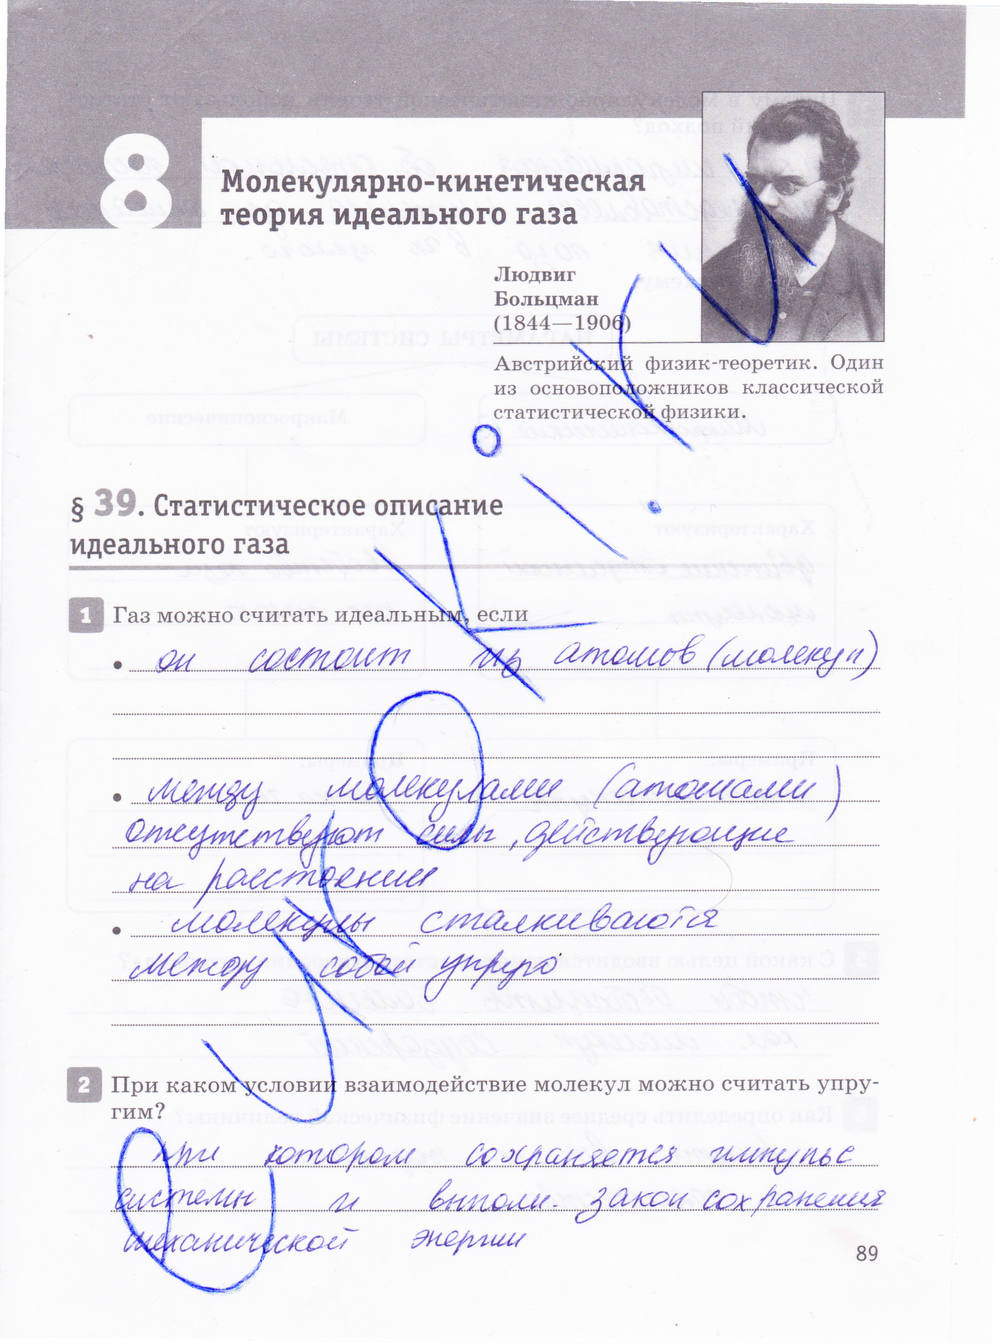 8
Молекулярно-кинетическая
теория идеального газа
Людвиг
Больцман
(1844—1906)
Австрийский физик-теоретик. Один
из основоположников классической
статистической физики.
§ 39. Статистическое описание
идеального газа
1 Газ можно считать идеальным, если
• он состоит из атомов (молекул)
• между молекулами (атомами)
отсутствуют силы, действующие
на расстоянии
• молекулы сталкиваются
между собой упруго
2 При каком условии взаимодействие молекул можно считать упру-
гим?
при котором сохраняется импульс
системы и выполн. закон сохранения
механической энергии
89